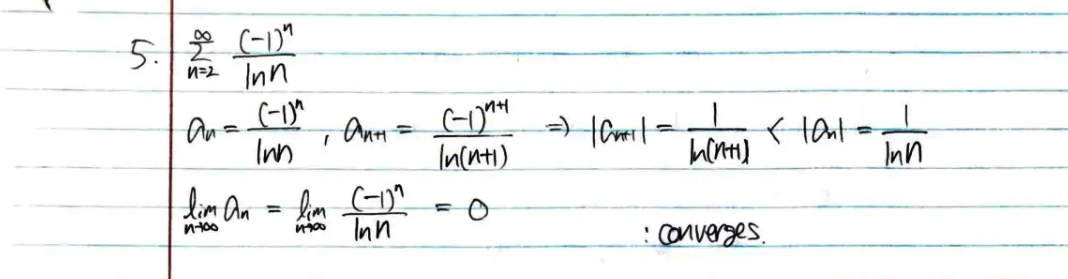 5. $\sum_{n=2}^{\infty} \frac{(-1)^n}{\ln n}$
$a_n = \frac{(-1)^n}{\ln n}$ , $a_{n+1} = \frac{(-1)^{n+1}}{\ln(n+1)}$ $\Rightarrow |a_{n+1}| = \frac{1}{\ln(n+1)} < |a_n| = \frac{1}{\ln n}$
$\lim_{n \to \infty} a_n = \lim_{n \to \infty} \frac{(-1)^n}{\ln n} = 0$
: converges.